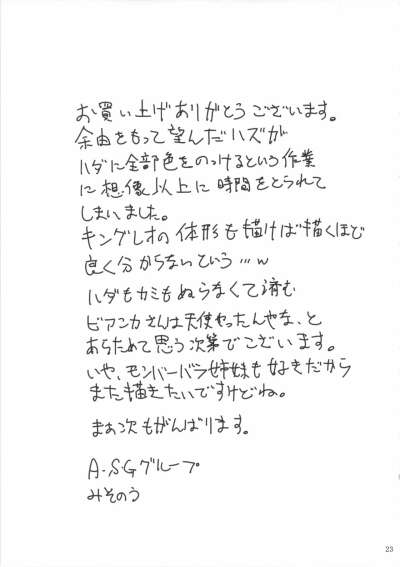 お買い上げありがとうございます。
余由をもって望んだハズが
ハダに全部色をのっけるという作業
に想像以上に時間をとられて
しまいました。
キングレオの体形も描けば描くほど
良く分からないという…w
ハダもカミもぬらなくて済む
ビアンカさんは天使やったんやな、と
あらためて思う次第でございます。
いや、モンバーバラ姉妹も好きだから
また描きたいですけどね。
まぁ次もがんばります。
A・SGグループ
みそのう
23